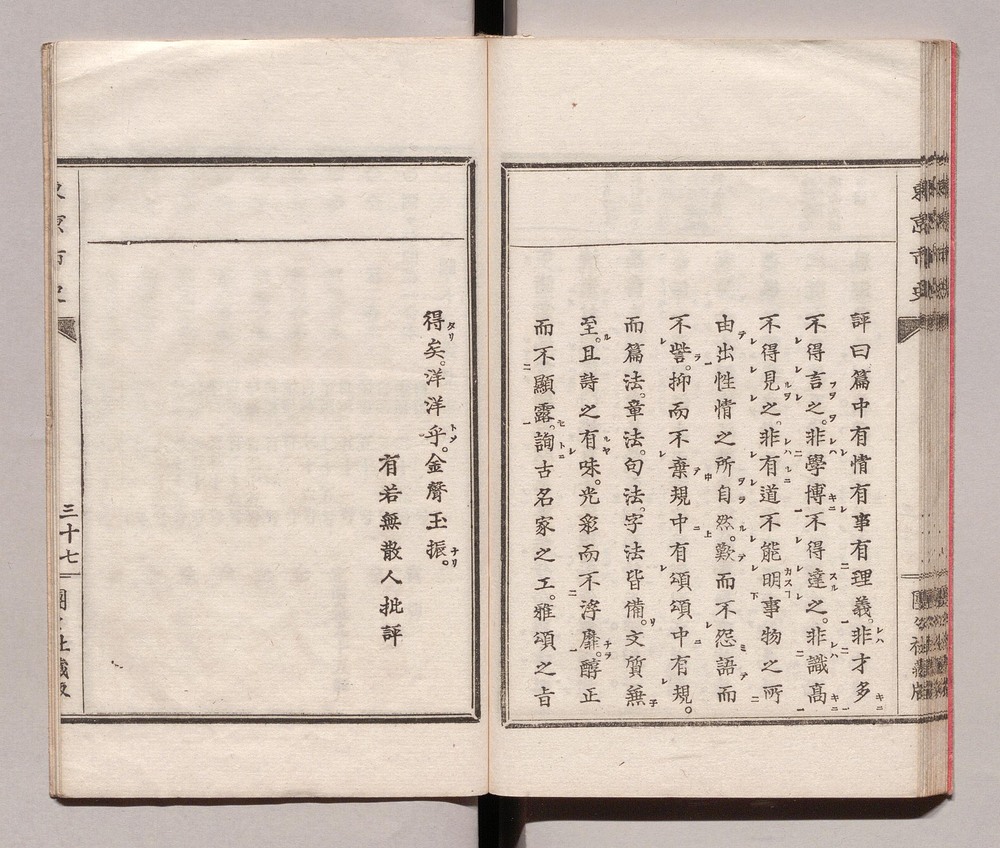 東京市史
評曰篇中有情有事有理義。非才多
不得言之。非學博不得達之。非識高
不得見之。非有道不能明事物之所
由出性情之所自然。歎而不怨語而
不訾。抑而不棄規中有頌頌中有規。
而篇法。章法。句法。字法皆備。文質兼
至。且詩之有味。光彩而不浮靡。醇正
而不顯露。詢古名家之工。雅頌之旨
得矣。洋洋乎。金聲玉振。
有若無散人批評
三十七